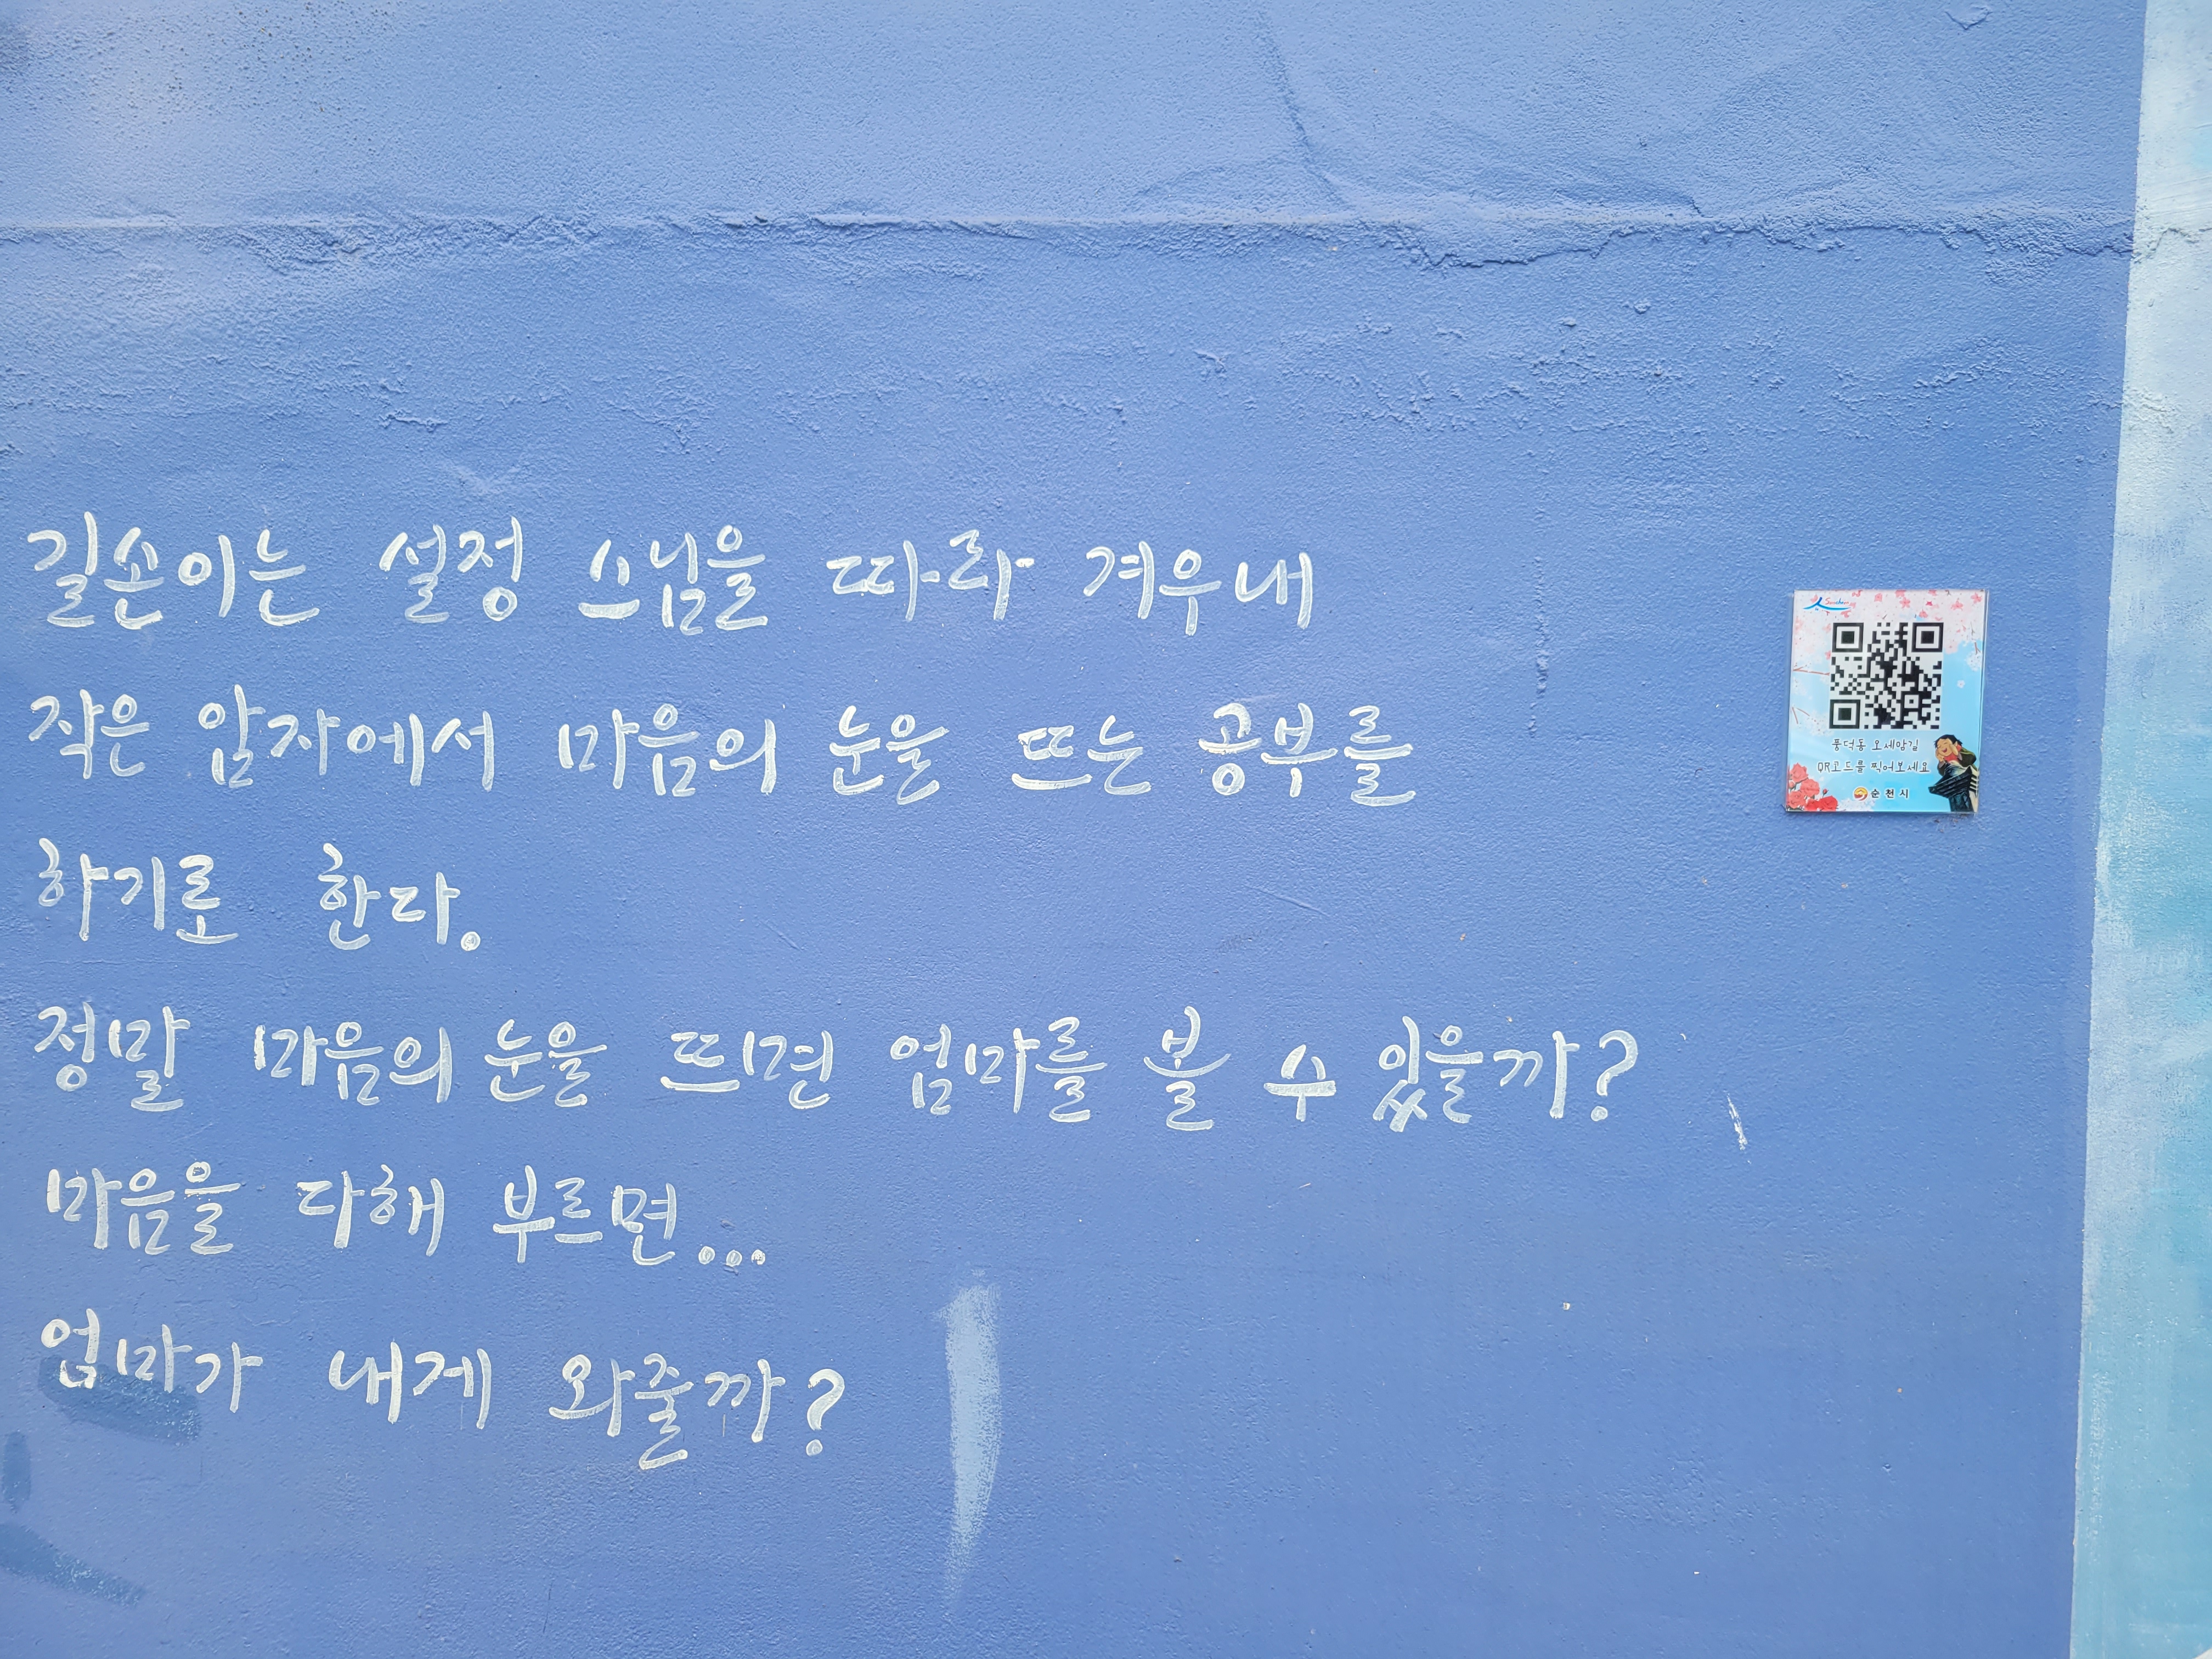 길손이는 설정 스님을 따라 겨우내
작은 암자에서 마음의 눈을 뜨는 공부를
하기로 한다.
정말 마음의 눈을 뜨면 엄마를 볼 수 있을까?
마음을 다해 부르면...
엄마가 내게 와줄까?
풍덕동 오세암길
QR코드를 찍어보세요
순천시